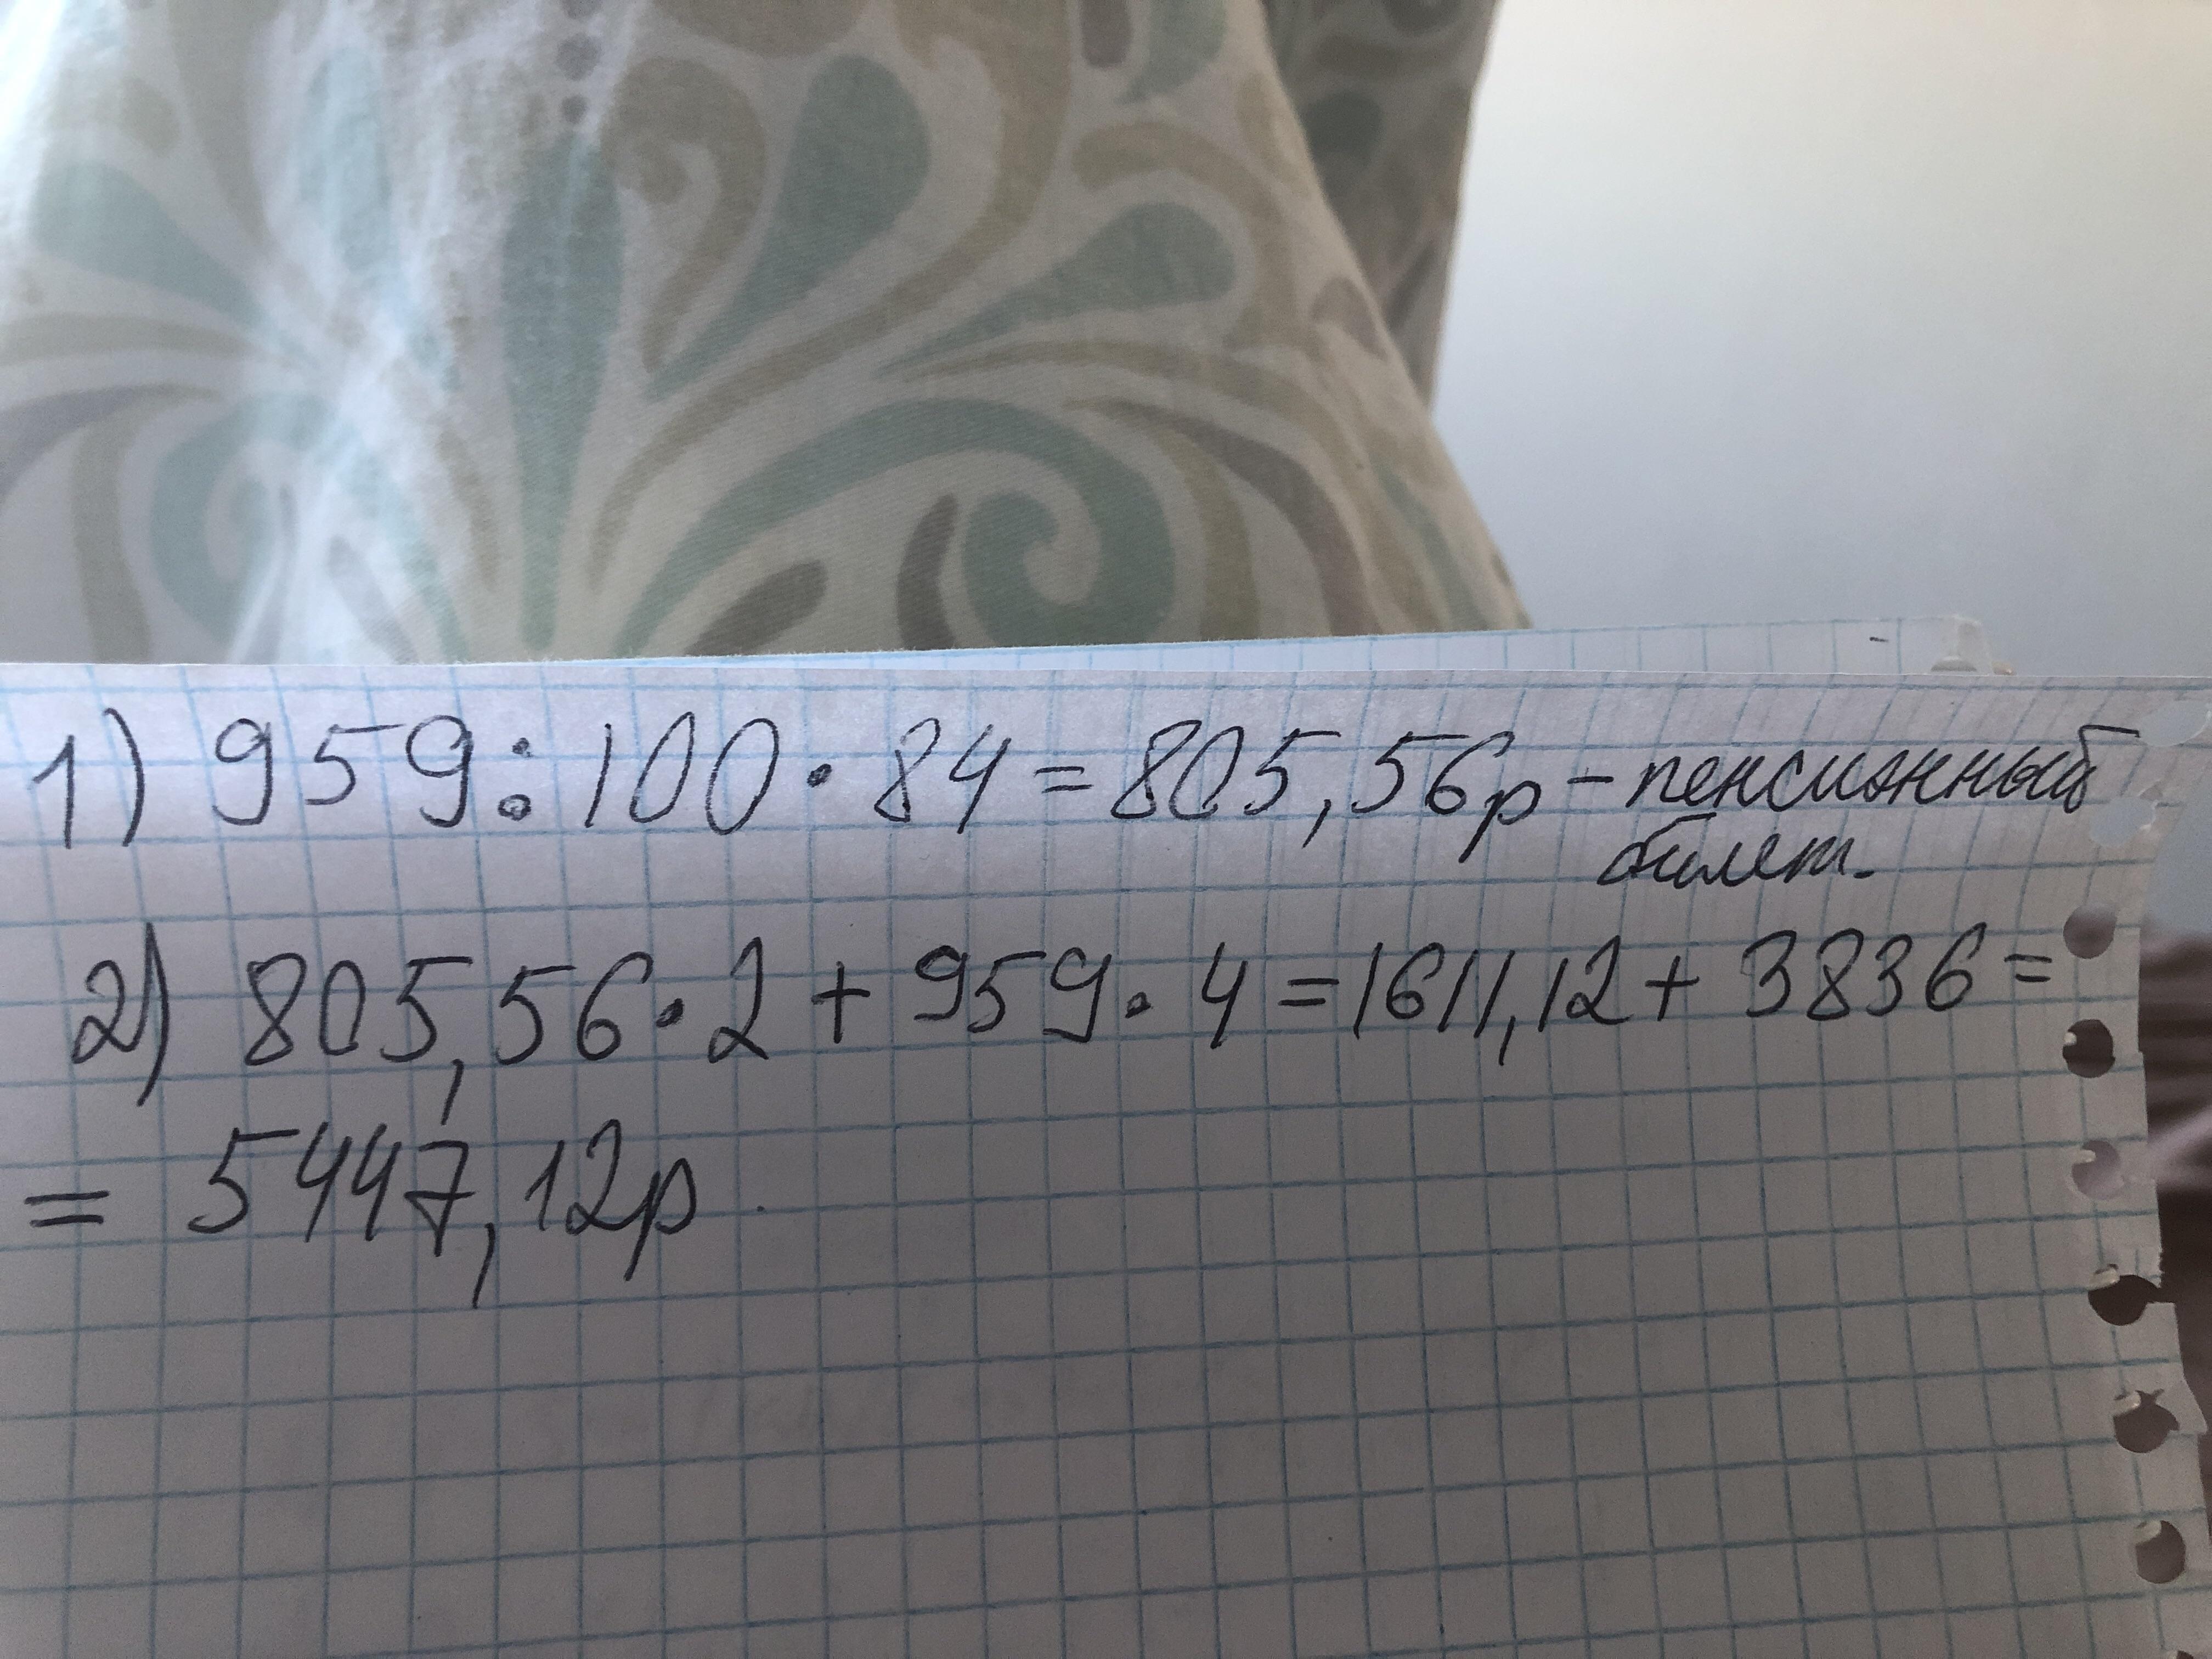 1) 959:100·84=805,56р-пенсионный
билет.
2) 805,56·2+959·4=1611,12+3836=
=5447,12р.